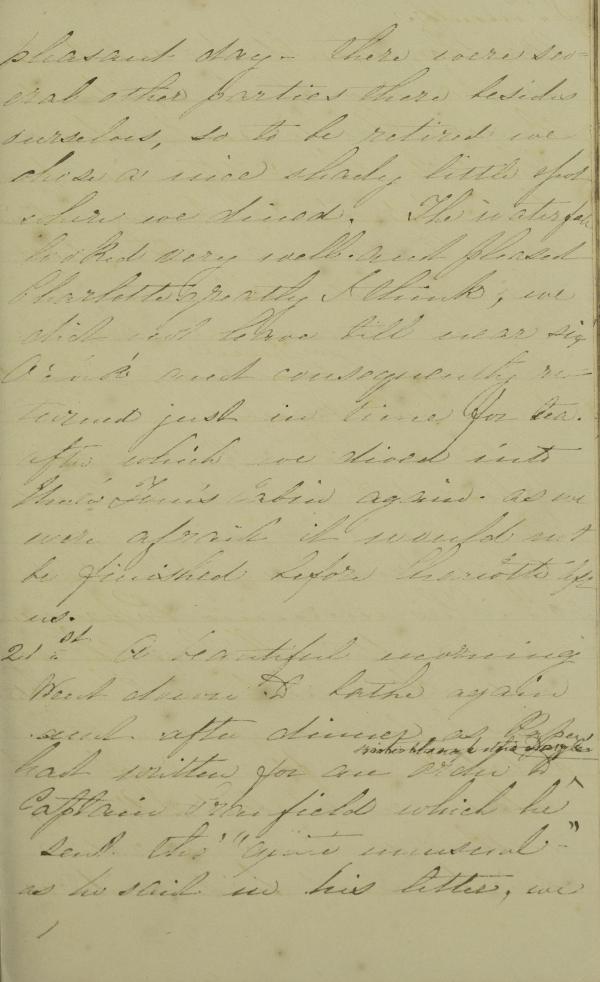 pleasant day - there were sev-
eral other parties there besides
ourselves, so to be retired we
chose a nice shady little spot
where we dined. The waterfall
looked very well. and pleased
Charlotte greatly I think, we
did not leave till near six
O'clock and consequently re-
turned just in time for tea.
after which we dived into
Uncle Tom's Cabin again. as we
were afraid it would not
be finished before Charlotte left
us.
21st A beautiful morning
Went down to bathe again
and after dinner, as Papa
had written for an order to
Captain which he
sent tho' "quite unusual"
as he said in his letter, we